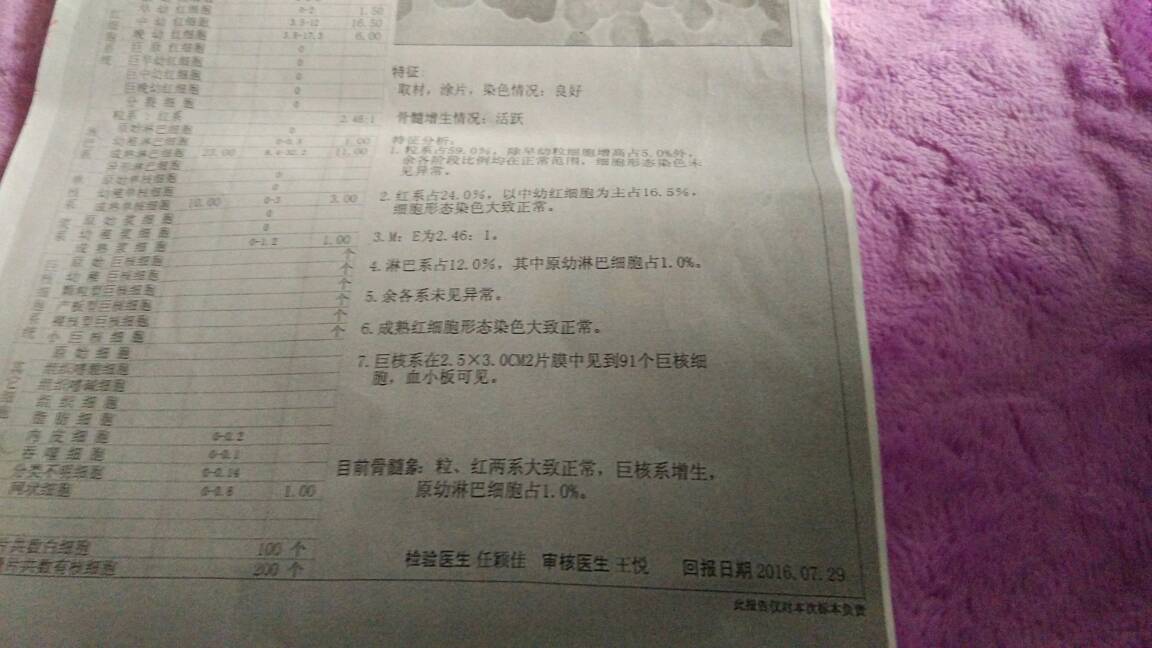 早 幼 红 细胞 0-2 1.50
中 幼 红 细胞 3.5-12 16.50
晚 幼 红 细胞 3.5-17.3 6.00
巨 原 红 细胞 0
巨早幼红细胞 0
巨中幼红细胞 0
巨晚幼红细胞 0
分 裂 细 胞 0
粒系：红系 2.46:1
原始淋巴细胞 0
幼稚淋巴细胞 1.00
成熟淋巴细胞 23.00 11.00
异形淋巴细胞
原始单核细胞 0
幼稚单核细胞 0
成熟单核细胞 10.00 0-3 3.00
原 始 浆 细 胞 0
幼 稚 浆 细 胞 0
成 熟 浆 细 胞 0-1.2 1.00
原 始 巨核细胞 个
幼 稚 巨核细胞 个
颗粒型巨核细胞 个
产板型巨核细胞 个
裸核型巨核细胞 个
小 巨 核 细 胞 个
原 始 细 胞
组织嗜酸细胞
组织嗜碱细胞
组 织 细 胞
脂 肪 细 胞
内 皮 细 胞 0-0.2
吞 噬 细 胞 0-0.1
分类不明细胞 0-0.14
网状细胞 0-0.6 1.00
片共数白细胞 100 个
片共数有核细胞 200 个
特征：
取材，涂片，染色情况：良好
骨髓增生情况：活跃
特征分析：
1. 粒系占59.0%，除早幼粒细胞增高占5.0%外，
余各阶段比例均在正常范围，细胞形态染色未
见异常。
2. 红系占24.0%，以中幼红细胞为主占16.5%，
细胞形态染色大致正常。
3. M：E为2.46：1。
4. 淋巴系占12.0%，其中原幼淋巴细胞占1.0%。
5. 余各系未见异常。
6. 成熟红细胞形态染色大致正常。
7. 巨核系在2.5×3.0CM2片膜中见到91个巨核细
胞，血小板可见。
目前骨髓象：粒、红两系大致正常，巨核系增生，
原幼淋巴细胞占1.0%。
检验医生 任颖佳 审核医生 王悦 回报日期 2016.07.29
此报告仅对本次标本负责